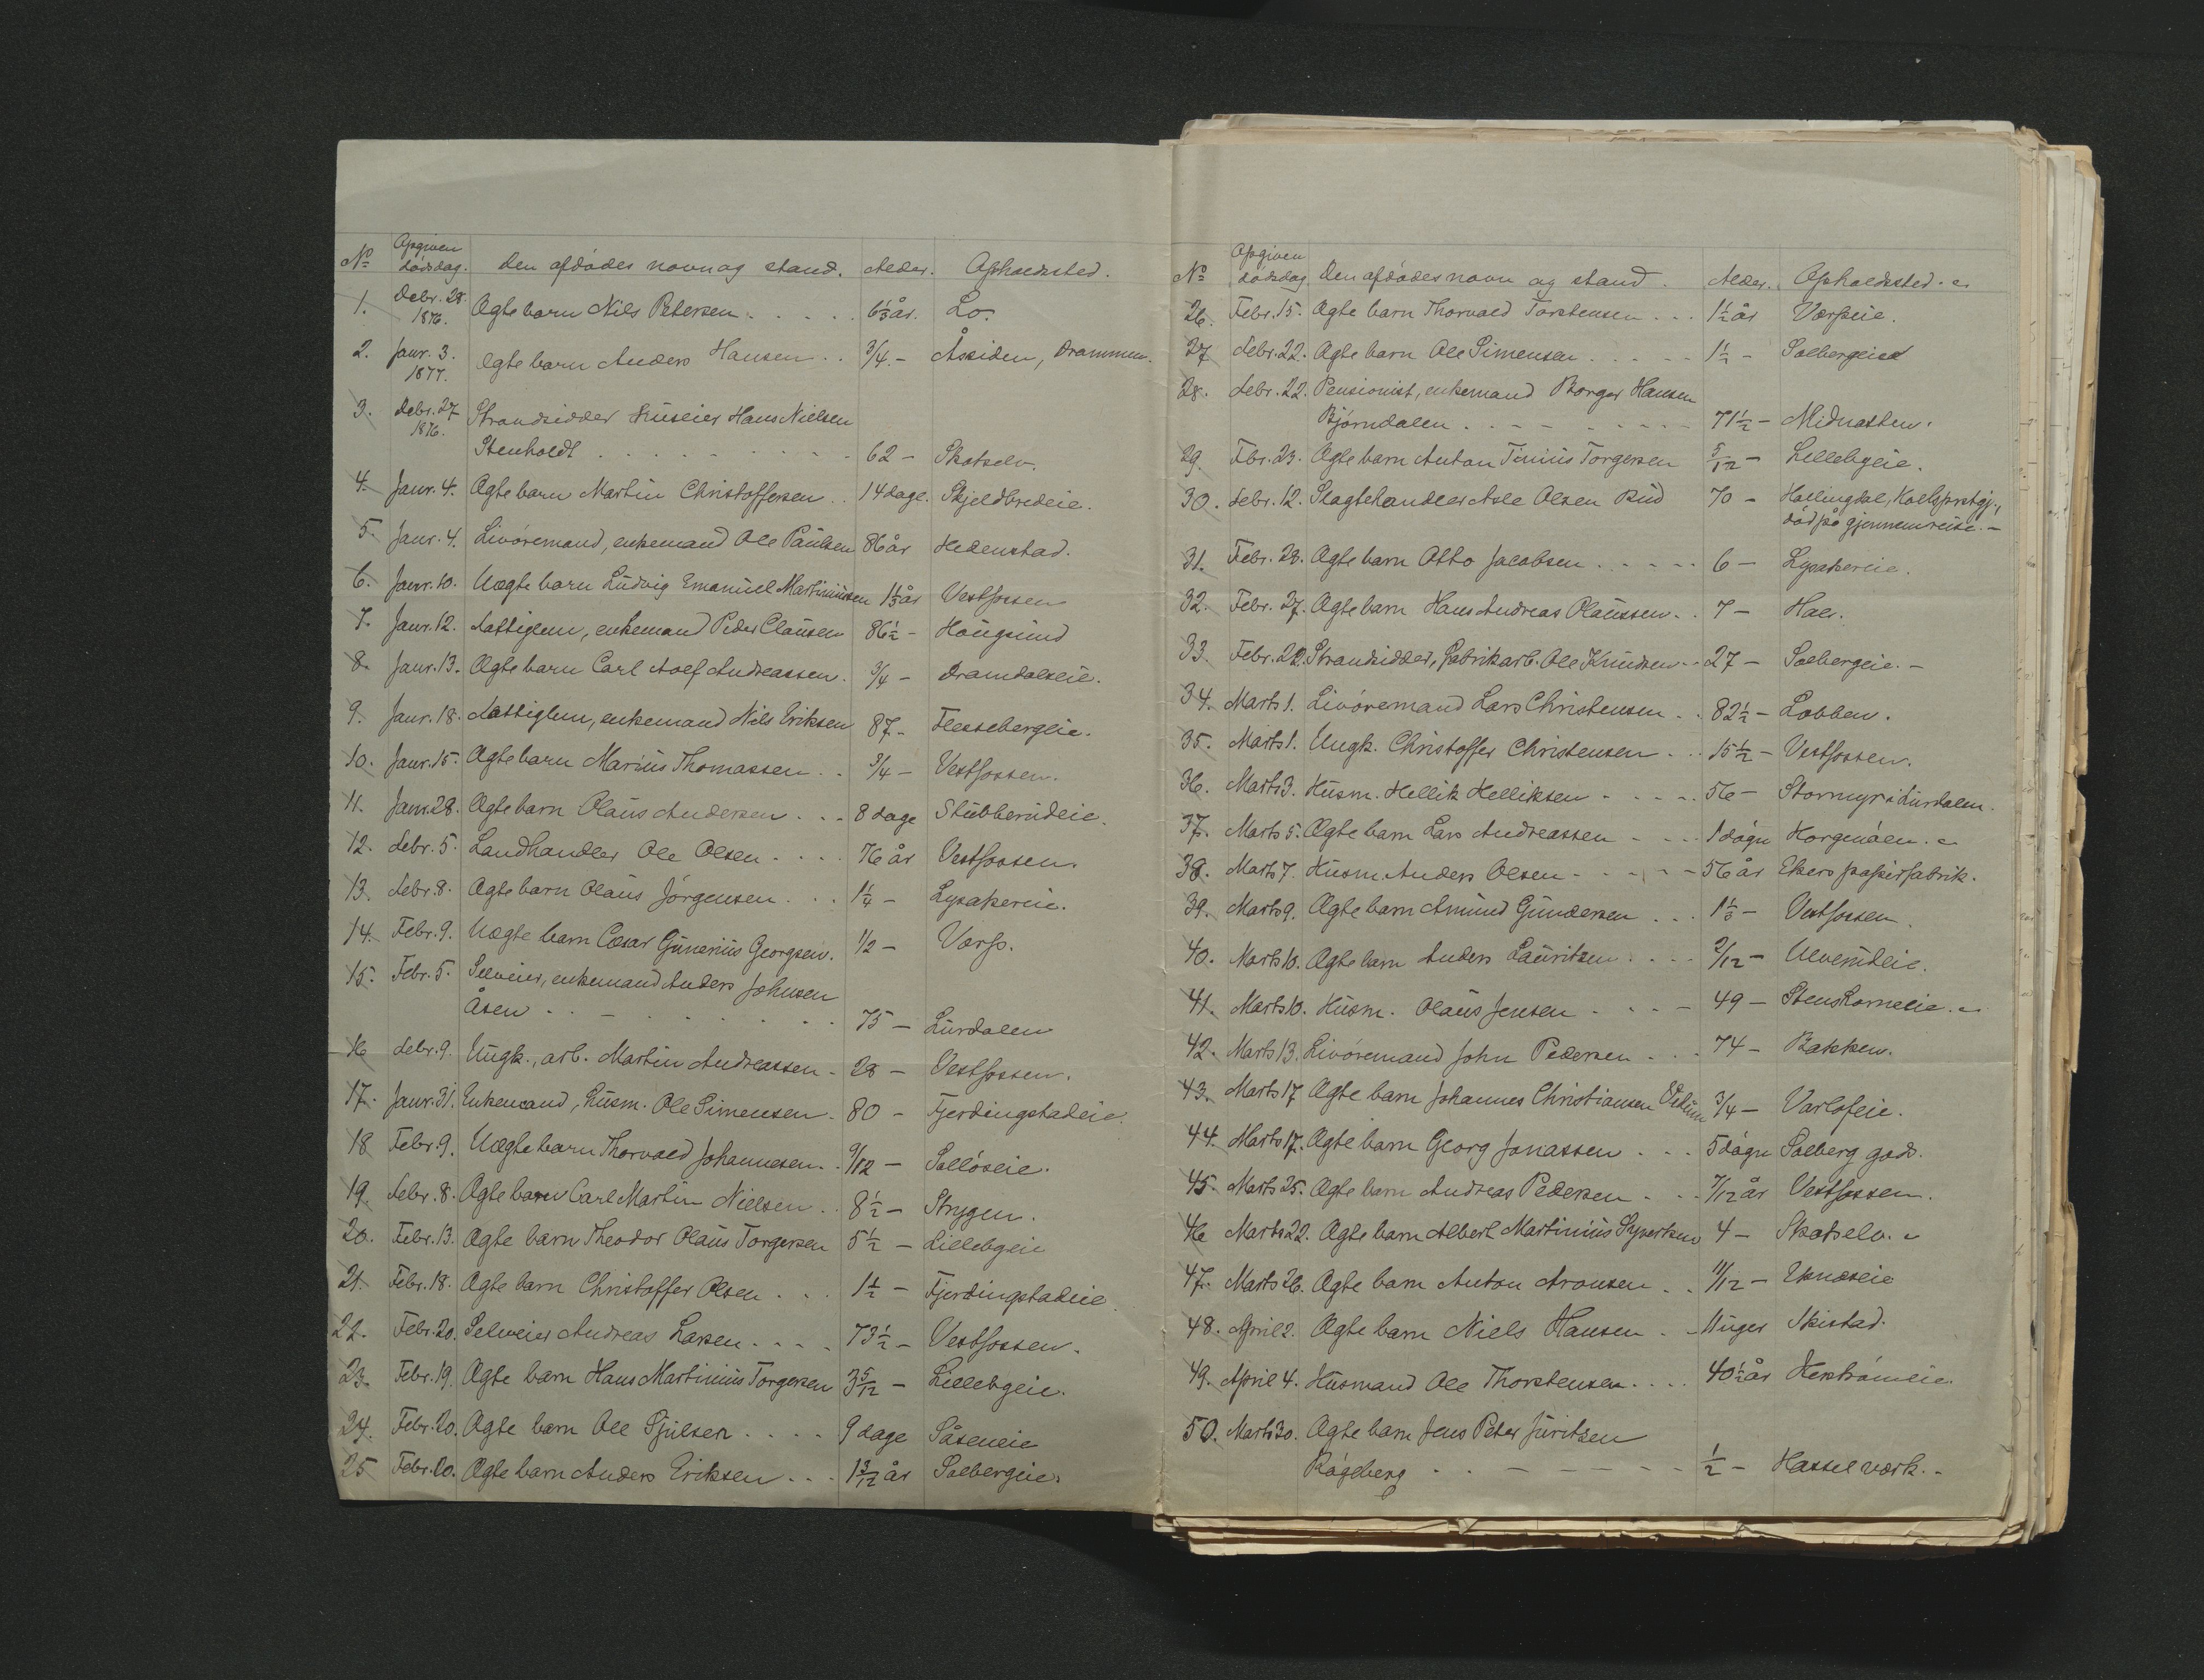 No Opgiven dødsdag. Den afdødes navn og stand. Alder. Opholdssted.
1. Debr. 28. 1876. Ægte barn Nils Petersen . . . . . 6 1/3 år. Lo.
2. Janr. 3. 1877. Ægte barn Anders Hansen . . 3/4 - Åssiden, Drammen.
3. Debr. 27 1876. Strandsidder Huseier Hans Nielsen
Stenholdt . . . . . . . . . 62 - Skotselv.
4. Janr. 4. Ægte barn Martin Christoffersen . . 14 dage. Skjeldbredeie.
5. Janr. 4. Livøremand, enkemand Ole Paulsen 86 år Hedenstad.
6. Janr. 10. Uægte barn Ludvig Emanuel Martiniusen 1 1/3 år Vestfossen
7. Janr. 12. Fattiglem, enkemand Peder Clausen 86 1/2 - Hougsund
8. Janr. 13. Ægte barn Carl Adolf Andreassen. 3/4 - Dramdalseie.
9. Janr. 18. Fattiglem, enkemand Nils Eriksen 87 - Flessebergeie.
10. Janr. 15. Ægte barn Marius Thomassen . . 3/4 - Vestfossen.
11. Janr. 28. Ægte barn Olaus Andersen . . . 8 dage Stubberudeie.
12. Febr. 5. Landhandler Ole Olsen . . . . 76 år Vestfossen.
13. Febr. 8. Ægte barn Olaus Jörgensen . . . 1 1/4 - Lysakereie.
14. Febr. 9. Uægte barn Cæsar Gunerius Georgsen. 1/2 - Værp.
15. Febr. 5. Selveier, enkemand Anders Johnsen
Åsen . . . . . . . . 75 - Lurdalen
16 Febr. 9. Ungk., arb. Martin Andreassen - 28 - Vestfossen.
17. Janr. 31. Enkemand, husm. Ole Simensen - 80 - Fjerdingstadeie.
18 Febr. 9. Uægte barn Thorvald Johannesen . . 9/12 - Solløseie.
19. Febr. 8. Ægte barn Carl Martin Nielsen . . 8 1/2 - Strygen.
20. Febr. 13. Ægte barn Theodor Olaus Torgersen 5 1/2 - Lillebgeie
21. Febr. 18. Ægte barn Christoffer Olsen . . . 1 1/2 - Fjerdingstadeie.
22. Febr. 20. Selveier Andreas Larsen . . . . 73 1/2 - Vestfossen.
23. Febr. 19. Ægte barn Hans Martinius Torgersen 3 5/12 - Lillebgeie.
24. Febr. 20. Ægte barn Ole Gjulsen . . . . 9 dage Såseneie
25 Febr. 20. Ægte barn Anders Eriksen . . . 1 3/12 år Solbergeie.
No Opgiven dødsdag Den afdødes navn og stand. Alder. Opholdssted.
26. Febr. 15. Ægte barn Thorvald Torstensen . . . 1 1/2 år Værpeie.
27 Febr. 22. Ægte barn Ole Simensen . . . . . 1 1/2 - Solbergeie
28. Febr. 22. Pensionist, enkemand Borger Hansen
Björndalen . . . . . . . 71 1/2 - Midnatten.
29. Febr. 23. Ægte barn Anton Tinius Torgersen 5/12 - Lillebgeie.
30. Febr. 12. Slagtehandler Asle Olsen Rud 70 - Hallingdal, Kolsprstgj.,
død på gjennemreise. -
31. Febr. 28. Ægte barn Otto Jacobsen . . . . . 6 - Lysakereie.
32. Febr. 27. Ægte barn Hans Andreas Olaussen . . 7 - Hals.
33. Febr. 22. Strandsidder, fabrikarb. Ole Knudsen . . 27 - Solbergeie. -
34. Marts 1. Livøremand Lars Christensen . . 82 1/2 - Lobben.
35. Marts 1. Ungk. Christoffer Christensen . . . 15 1/2 - Vestfossen.
36. Marts 3. Husm. Hellik Helliksen . . . . . 56 - Stormyr i Lurdalen.
37. Marts 5. Ægte barn Lars Andreassen . . . . 1 døgn Horgenåen.
38. Marts 7. Husm. Anders Olsen . . . . . 56 år Ekers papirfabrik.
39. Marts 9. Ægte barn Amund Gundersen . . . 1 1/3 - Vestfossen.
40. Marts 10. Ægte barn Anders Lauritsen . . . . 2/12 - Ulverudeie.
41. Marts 10. Husm. Olaus Jensen . . . - 49 - Stenskorneeie.
42. Marts 13. Livøremand John Pedersen . . . 74 - Bakken.
43. Marts 17 Ægte barn Johannes Christiansen 3/4 - Varlofeie.
44. Marts 17. Ægte barn Georg Jonassen . . . 5 døgn Solberg gods.
45. Marts 25. Ægte barn Andreas Pedersen . . . 7/12 år Vestfossen.
46 Marts 22. Ægte barn Albert Martinius Syvertsen 4 - Skotselv.
47. Marts 26. Ægte barn Anton Aronsen . . . 11/12 - Uknæseie
48. April 2. Ægte barn Niels Hansen . . 11 uger Skistad.
49. April 4. Husmand Ole Thorstensen . . . . 40 1/2 år
50. Marts 30. Ægte barn Jens Peter Juritsen
Rågeberg . . . . . . . 1/2 - Hasselværk. -